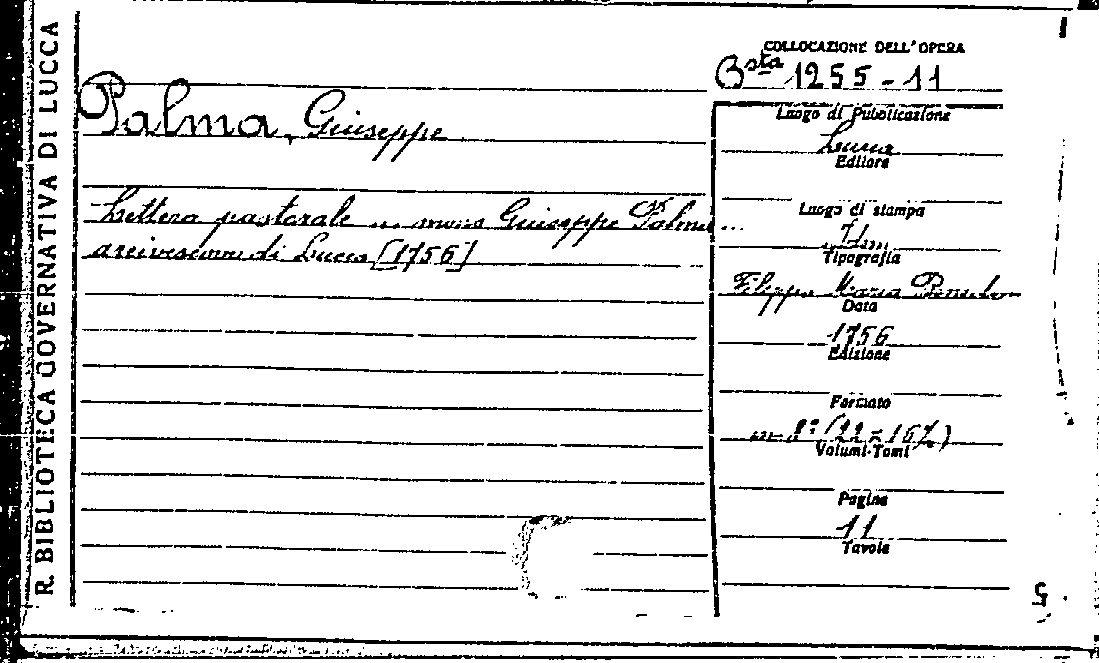 R. BIBLIOTECA GOVERNATIVA DI LUCCA
COLLOCAZIONE DELL'OPERA
Bsta 1255-11
Palma, Giuseppe
Lettera pastorale ... mons Giuseppe Palma ...
arcivescovo di Lucca [1756]
Luogo di Pubblicazione
Lucca
Editore
Luogo di stampa
Idem
Tipografia
Filippo Maria
Data
1756
Edizione
Formato
in 8º (22 x 16½)
Volumi-Tomi
Pagine
11
Tavole
5